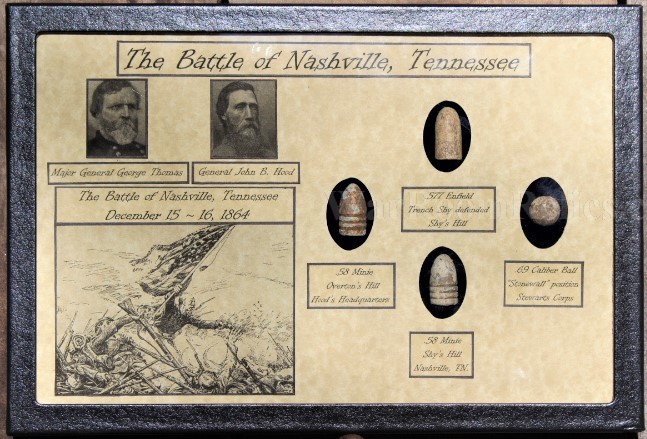 The Battle of Nashville, Tennessee
Major General George Thomas
General John B. Hood
The Battle of Nashville, Tennessee
December 15 ~ 16, 1864
.577 Enfield
Trench Shy defended
Shy's Hill
.58 Minie
Overton's Hill
Hood's Headquarters
.69 Caliber Ball
"Stonewall" position
Stewarts Corps
.58 Minie
Shy's Hill
Nashville, TN.